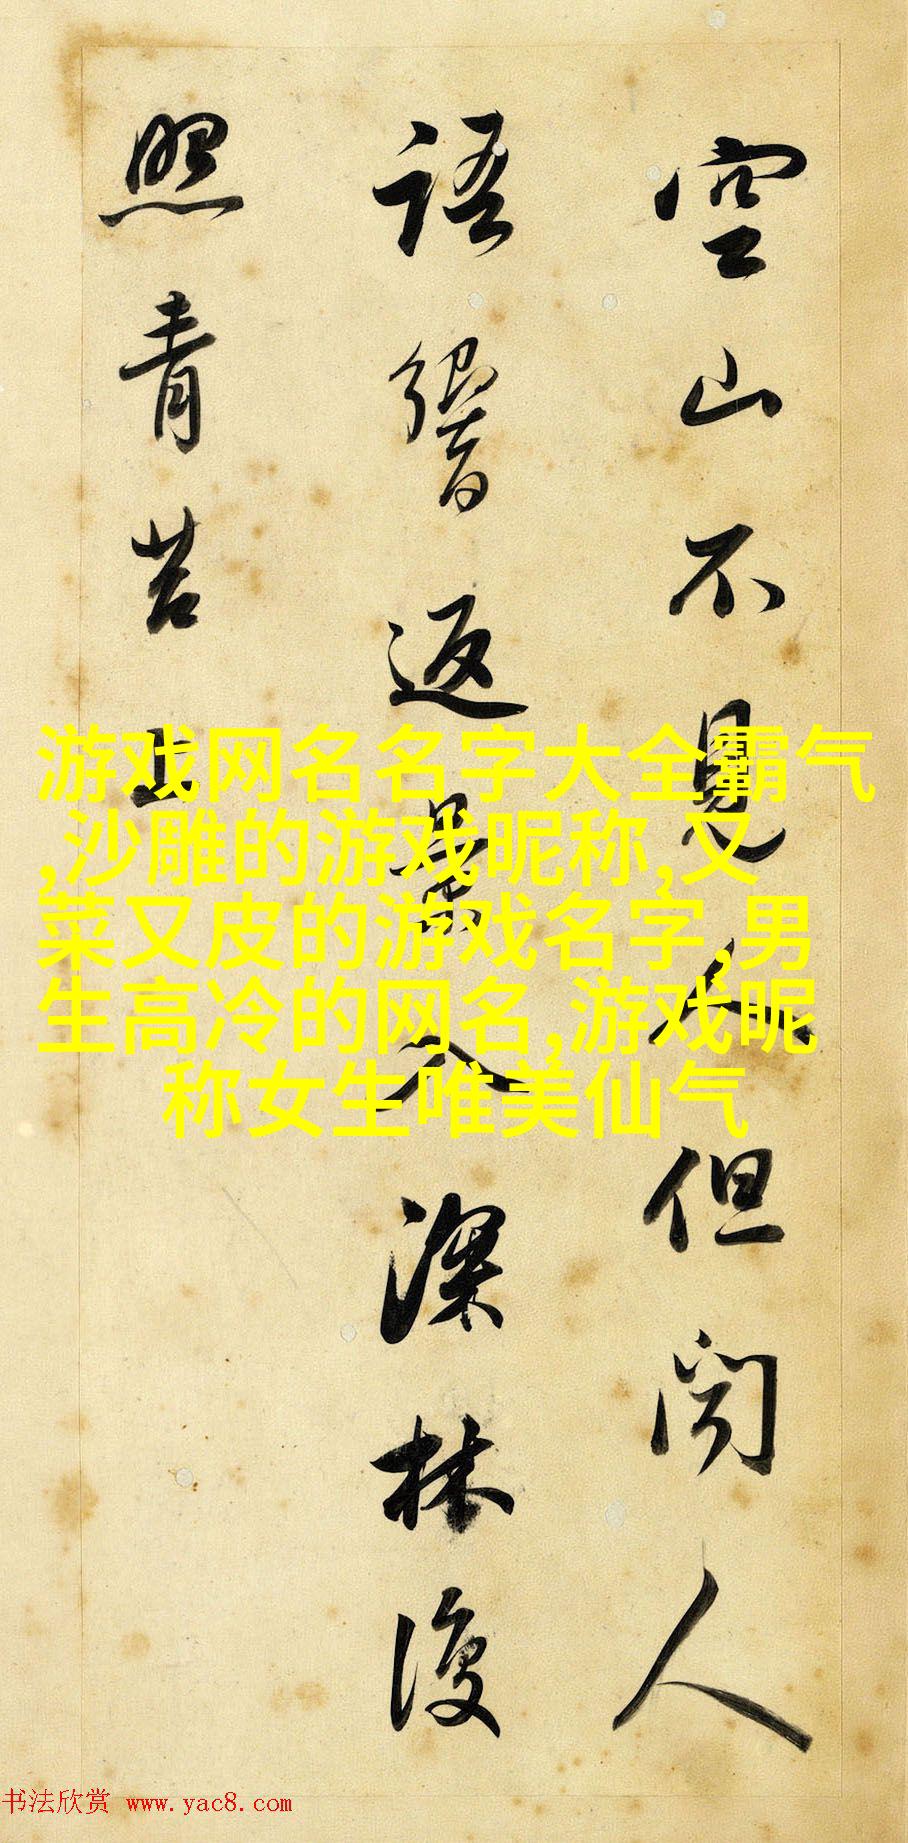 空山不見人但聞人
語響返景入深林復
照青苔上
游戏网名名字大全霸气
,沙雕的游戏昵称,又
菜又皮的游戏名字,男
生高冷的网名,游戏昵
称女生唯美仙气
书法欣赏 www.yac8.com